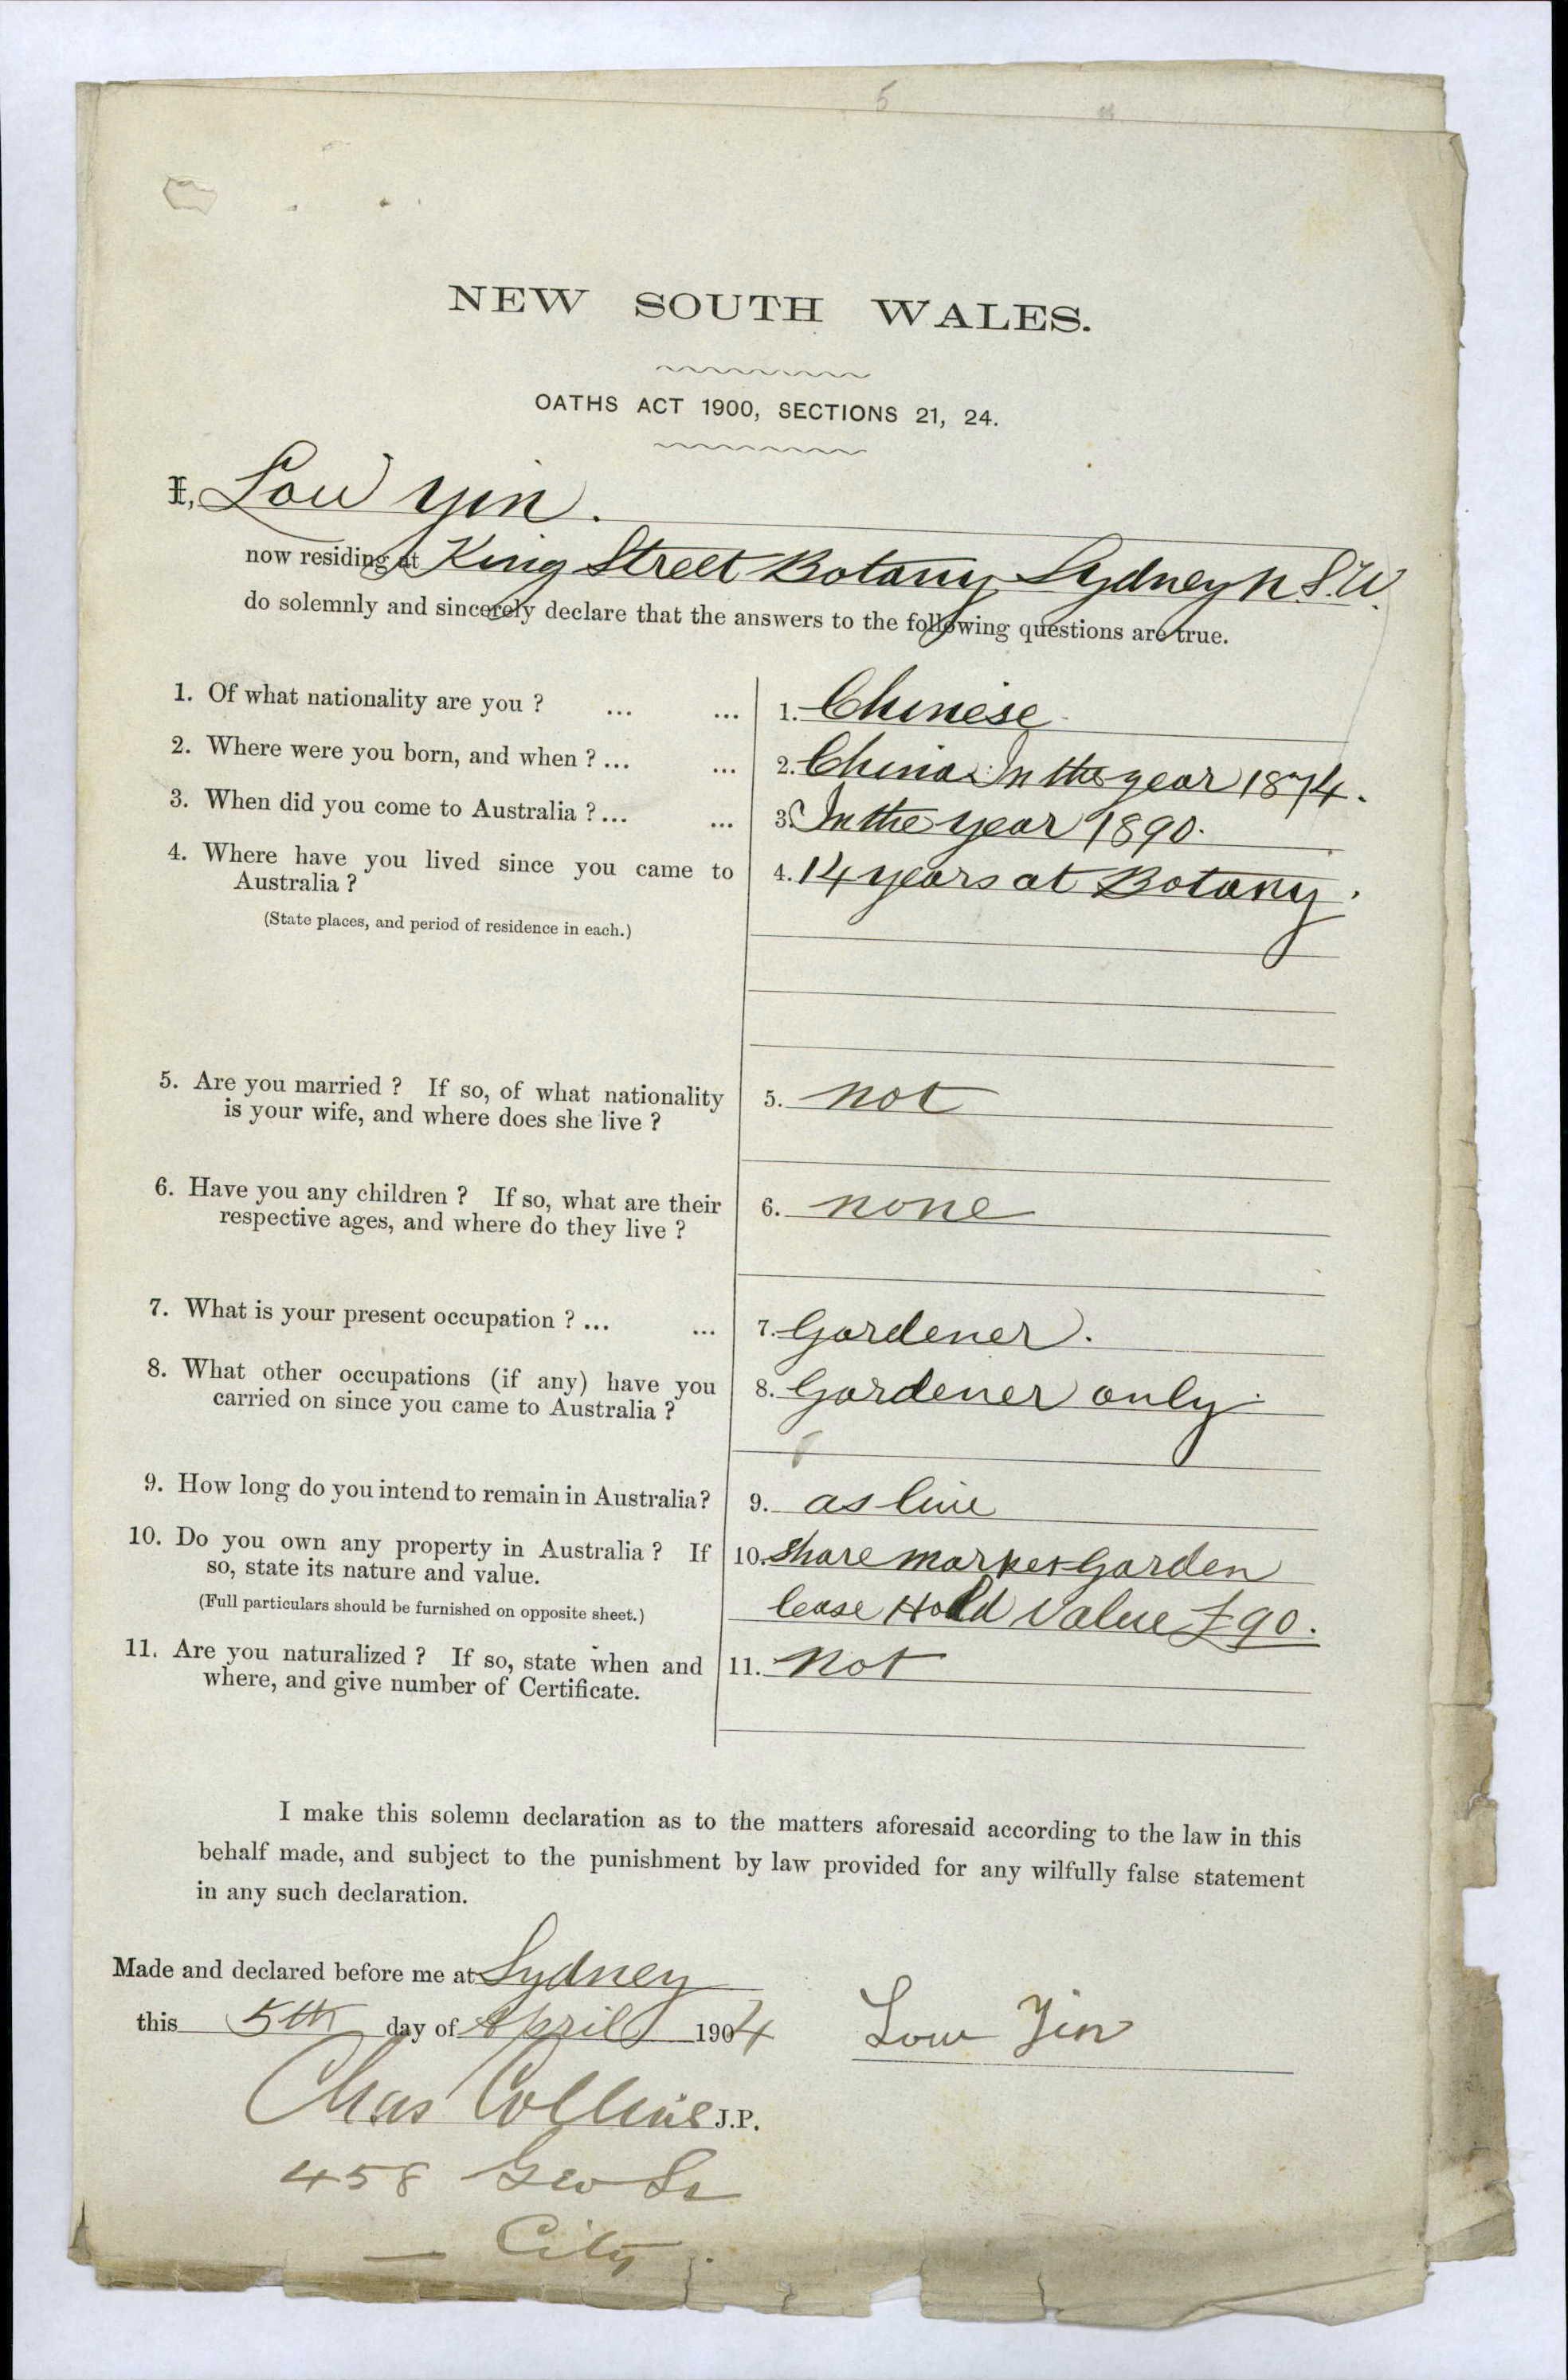 5
NEW SOUTH WALES.
OATHS ACT 1900, SECTIONS 21, 24.
I, Low Yin.
now residing at King Street Botany Sydney N.S.W.
do solemnly and sincerely declare that the answers to the following questions are true.
1. Of what nationality are you ? ... ... 1. Chinese
2. Where were you born, and when ? ... ... 2. China In the year 1874.
3. When did you come to Australia ? ... ... 3. In the year 1890.
4. Where have you lived since you came to 4. 14 years at Botany.
Australia ?
(State places, and period of residence in each.)
5. Are you married ? If so, of what nationality 5. not
is your wife, and where does she live ?
6. Have you any children ? If so, what are their 6. none
respective ages, and where do they live ?
7. What is your present occupation ? ... ... 7. Gardener.
8. What other occupations (if any) have you 8. Gardener only.
carried on since you came to Australia ?
9. How long do you intend to remain in Australia? 9. as live
10. Do you own any property in Australia ? If 10. Share market Garden
so, state its nature and value.
(Full particulars should be furnished on opposite sheet.) lease Hold Value £90.
11. Are you naturalized ? If so, state when and 11. Not
where, and give number of Certificate.
I make this solemn declaration as to the matters aforesaid according to the law in this
behalf made, and subject to the punishment by law provided for any wilfully false statement
in any such declaration.
Made and declared before me at Sydney
this 5th day of April 1904 Low Yin
Chas Collins J.P.
458 Geo St
City.